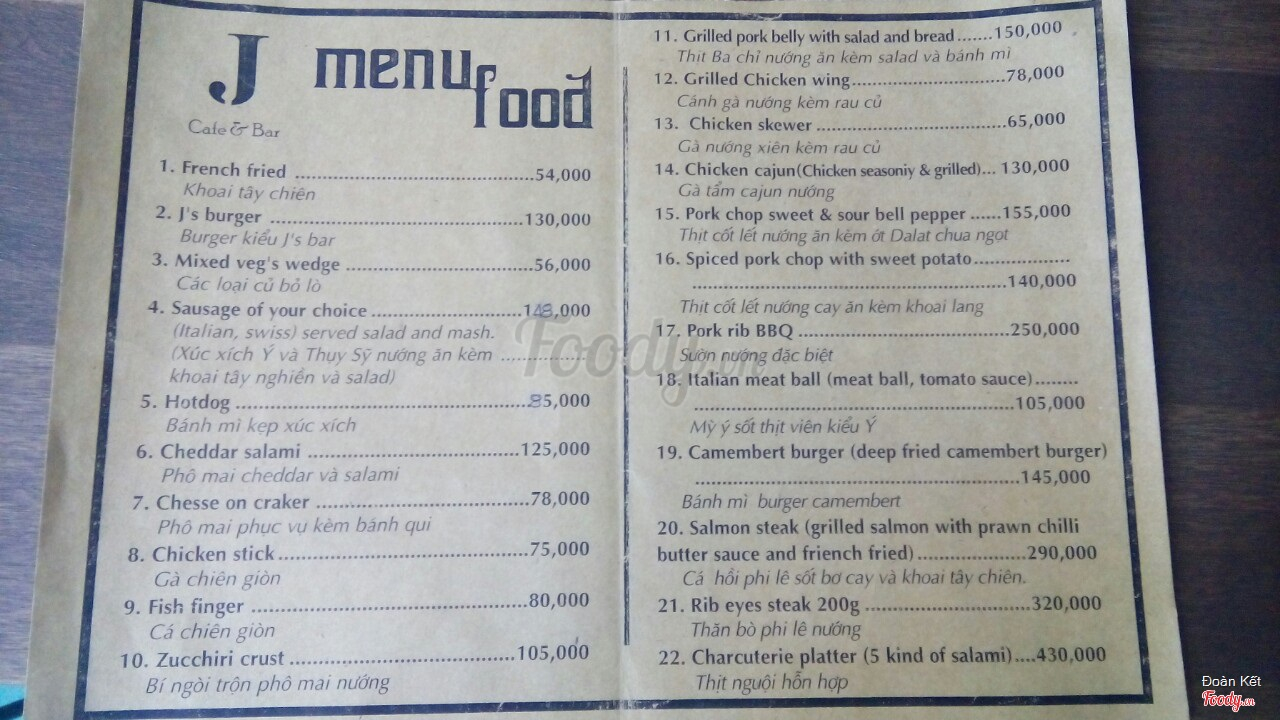 J
Cafe & Bar
menu food
1. French fried ........ 54,000
Khoai tây chiên
2. J's burger ........ 130,000
Burger kiểu J's bar
3. Mixed veg's wedge ........ 56,000
Các loại củ bỏ lò
4. Sausage of your choice ........ 148,000
(Italian, swiss) served salad and mash.
(Xúc xích Ý và Thụy Sỹ nướng ăn kèm ........
khoai tây nghiền và salad)
5. Hotdog ........ 85,000
Bánh mì kẹp xúc xích
6. Cheddar salami ........ 125,000
Phô mai cheddar và salami
7. Chesse on craker ........ 78,000
Phô mai phục vụ kèm bánh qui
8. Chicken stick ........ 75,000
Gà chiên giòn
9. Fish finger ........ 80,000
Cá chiên giòn
10. Zucchiri crust ........ 105,000
Bí ngòi trộn phô mai nướng
11. Grilled pork belly with salad and bread ....... 150,000
Thịt Ba chỉ nướng ăn kèm salad và bánh mì
12. Grilled Chicken wing ........ 78,000
Cánh gà nướng kèm rau củ
13. Chicken skewer ........ 65,000
Gà nướng xiên kèm rau củ
14. Chicken cajun(Chicken seasoniy & grilled)... 130,000
Gà tẩm cajun nướng
15. Pork chop sweet & sour bell pepper ...... 155,000
Thịt cốt lết nướng ăn kèm ớt Dalat chua ngọt
16. Spiced pork chop with sweet potato ........
........ 140,000
Thịt cốt lết nướng cay ăn kèm khoai lang
17. Pork rib BBQ ........ 250,000
Sườn nướng đặc biệt
18. Italian meat ball (meat ball, tomato sauce)........
........ 105,000
Mỳ ý sốt thịt viên kiểu Ý
19. Camembert burger (deep fried camembert burger)
........ 145,000
Bánh mì burger camembert
20. Salmon steak (grilled salmon with prawn chilli
butter sauce and friench fried) ........ 290,000
Cá hồi phi lê sốt bơ cay và khoai tây chiên.
21. Rib eyes steak 200g ........ 320,000
Thăn bò phi lê nướng
22. Charcuterie platter (5 kind of salami)....430,000
Thịt nguội hỗn hợp
Foody.vn
Đoàn Kết
Foody.vn